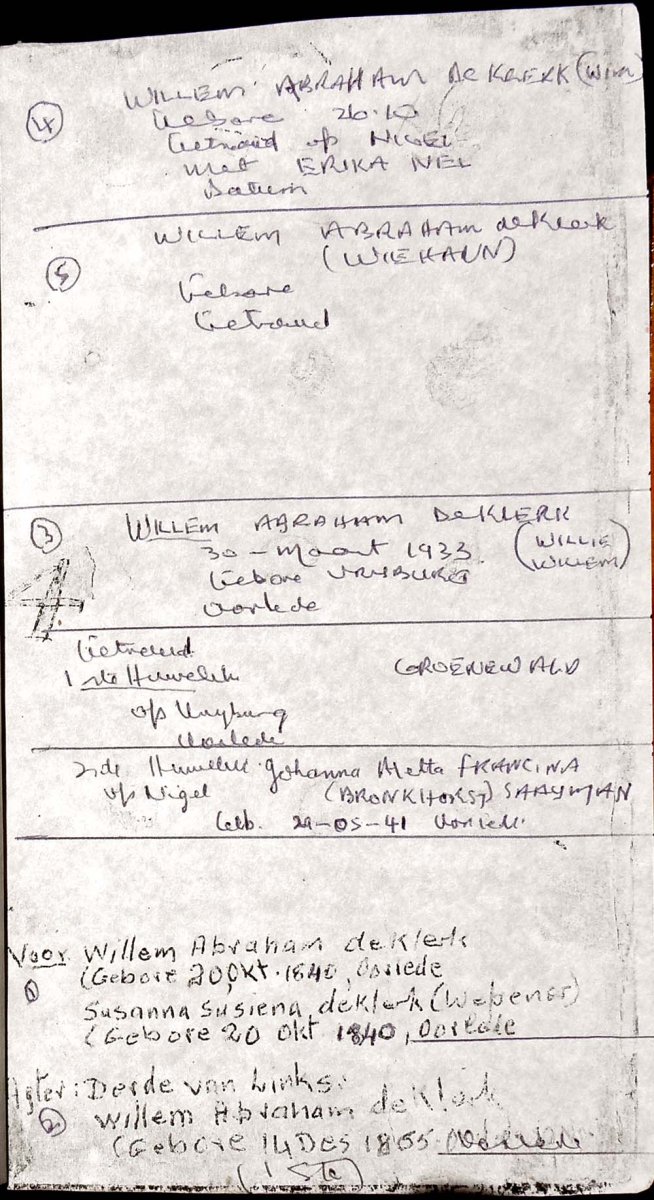 WILLEM ABRAHAM DE KLERK (Wim)
④ Gebore 26.10
Getroud op NIGEL
Met ERIKA NEL
Datum
WILLEM ABRAHAM de Klerk
(WIEHANN)
⑤
Gebore
Getroud
③ WILLEM ABRAHAM DE KLERK
30 - Maart 1933 (WILLIE WILLEM)
Gebore VRYBURG
Oorlede
Getroud
1ste Huwelik GROENEWALD
op Vryburg
Oorlede
2de Huwelik Johanna Metta FRANCINA
op Nigel (BRONKHORST) SAAYMAN
Geb. 29-05-41 Oorlede
Voor Willem Abraham de Klerk
(Gebore 20 Okt. 1840, Oorlede
① Susanna Susiena de Klerk
(Gebore 20 Okt 1840, Oorlede
Agter: Derde van Links:
② Willem Abraham de Klerk
(Gebore 14 Des 1865 Oorlede
(1 Ste)